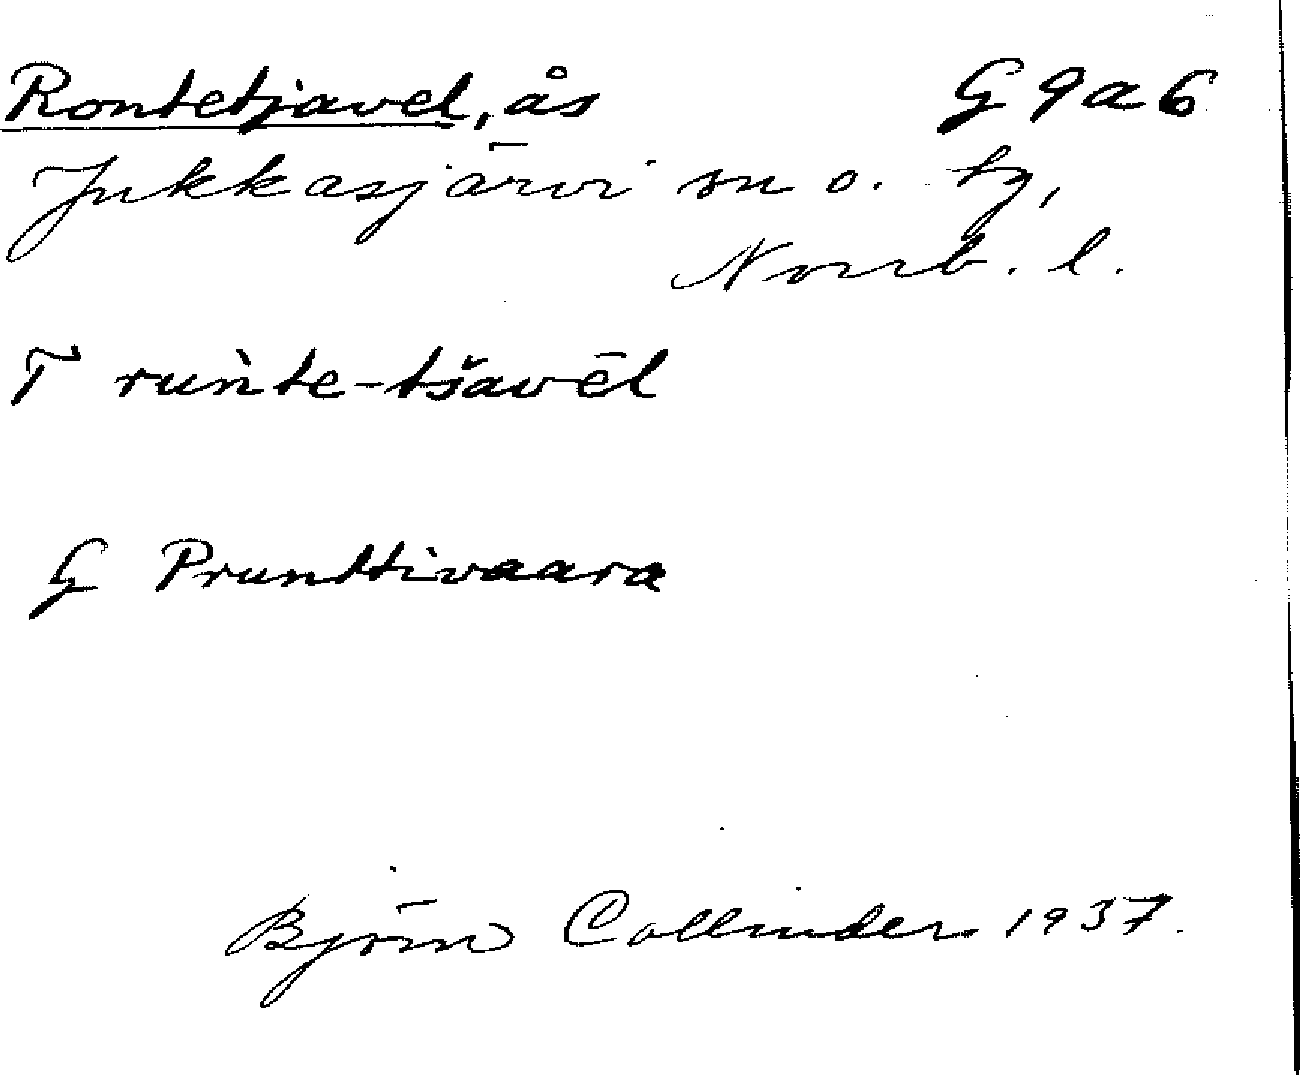 Rontetjavel, ås G 9 a 6
Jukkasjärvi sn o. tg,
Norrb. l.
T runte-tšavēl
G Prunttivaara
Björn Collinder 1937.